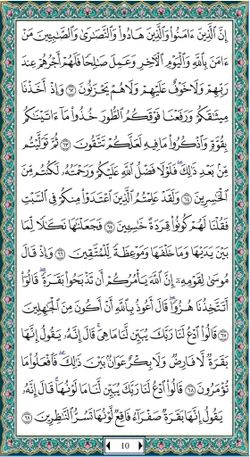 إِنَّ ٱلَّذِينَ ءَامَنُوا۟ وَٱلَّذِينَ هَادُوا۟ وَٱلنَّصَٰرَىٰ وَٱلصَّٰبِـِٔينَ مَنْ
ءَامَنَ بِٱللَّهِ وَٱلْيَوْمِ ٱلْءَاخِرِ وَعَمِلَ صَٰلِحًا فَلَهُمْ أَجْرُهُمْ عِندَ
رَبِّهِمْ وَلَا خَوْفٌ عَلَيْهِمْ وَلَا هُمْ يَحْزَنُونَ ٦٢ وَإِذْ أَخَذْنَا
مِيثَٰقَكُمْ وَرَفَعْنَا فَوْقَكُمُ ٱلطُّورَ خُذُوا۟ مَآ ءَاتَيْنَٰكُم
بِقُوَّةٍ وَٱذْكُرُوا۟ مَا فِيهِ لَعَلَّكُمْ تَتَّقُونَ ٦٣ ثُمَّ تَوَلَّيْتُم
مِّنۢ بَعْدِ ذَٰلِكَ ۖ فَلَوْلَا فَضْلُ ٱللَّهِ عَلَيْكُمْ وَرَحْمَتُهُۥ لَكُنتُم مِّنَ
ٱلْخَٰسِرِينَ ٦٤ وَلَقَدْ عَلِمْتُمُ ٱلَّذِينَ ٱعْتَدَوْا۟ مِنكُمْ فِى ٱلسَّبْتِ
فَقُلْنَا لَهُمْ كُونُوا۟ قِرَدَةً خَٰسِـِٔينَ ٦٥ فَجَعَلْنَٰهَا نَكَٰلًا لِّمَا
بَيْنَ يَدَيْهَا وَمَا خَلْفَهَا وَمَوْعِظَةً لِّلْمُتَّقِينَ ٦٦ وَإِذْ قَالَ
مُوسَىٰ لِقَوْمِهِۦٓ إِنَّ ٱللَّهَ يَأْمُرُكُمْ أَن تَذْبَحُوا۟ بَقَرَةً ۖ قَالُوٓا۟
أَتَتَّخِذُنَا هُزُوًا ۖ قَالَ أَعُوذُ بِٱللَّهِ أَنْ أَكُونَ مِنَ ٱلْجَٰهِلِينَ
٦٧ قَالُوا۟ ٱدْعُ لَنَا رَبَّكَ يُبَيِّن لَّنَا مَا هِىَ ۚ قَالَ إِنَّهُۥ يَقُولُ إِنَّهَا
بَقَرَةٌ لَّا فَارِضٌ وَلَا بِكْرٌ عَوَانٌۢ بَيْنَ ذَٰلِكَ ۖ فَٱفْعَلُوا۟ مَا
تُؤْمَرُونَ ٦٨ قَالُوا۟ ٱدْعُ لَنَا رَبَّكَ يُبَيِّن لَّنَا مَا لَوْنُهَا ۚ قَالَ إِنَّهُۥ
يَقُولُ إِنَّهَا بَقَرَةٌ صَفْرَآءُ فَاقِعٌ لَّوْنُهَا تَسُرُّ ٱلنَّٰظِرِينَ ٦٩
10